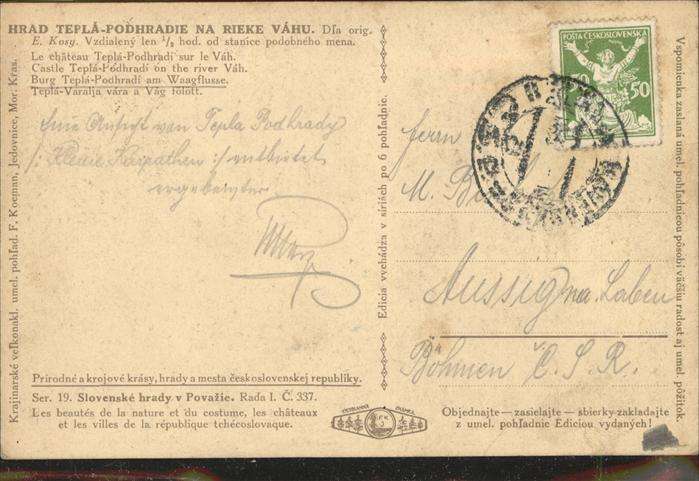 HRAD TEPLÁ-PODHRADIE NA RIEKE VÁHU. Dľa orig.
E. Kosy. Vzdialený len ½ hod. od stanice podobného mena.
Le château Teplá-Podhradí sur le Váh.
Castle Teplá-Podhradí on the river Váh.
Burg Teplá-Podhradí am Waagflusse.
Teplá-Váralja vára a Vág fölött.
Eine Ansicht von Tepla Podhrady
/: Kleine Karpathen :/ entbietet
ergebenster
Prírodné a krojové krásy, hrady a mesta československej republiky.
Ser. 19. Slovenské hrady v Považie. Rada I. Č. 337.
Les beautés de la nature et du costume, les châteaux
et les villes de la république tchécoslovaque.
Krajinarské veľkonakl. umel. pohľad. F. Koeman, Jedovnice, Mor. Kras.
Edicia vychádza v siríách po 6 pohľadnic.
POŠTA ČESKOSLOVENSKÁ
50 50
Herrn
M.
Aussig na Laben
Böhmen Č. S. R.
Objednajte — zasielajte — sbierky zakladajte
z umel. pohľadnic Ediciou vydaných!
Vspomienka zaslaná umel. pohľadnicou pôsobí väčšiu radosť aj umel. pôžitok.